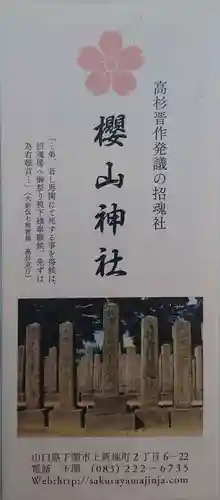 高杉晋作発議の招魂社
櫻山神社
「…弟、若し馬関にて死する事を得候は、
招魂場へ御祭り被下積奉願候、先ずは
為右頼言…」
山口県下関市上新地町2丁目6-22
電話 下関 (083)222-6735
Web:http://sakurayamajinja.com